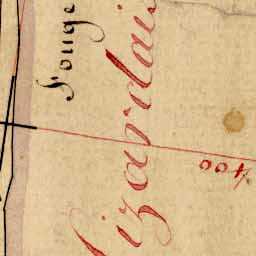 Fouge
izardais
400.